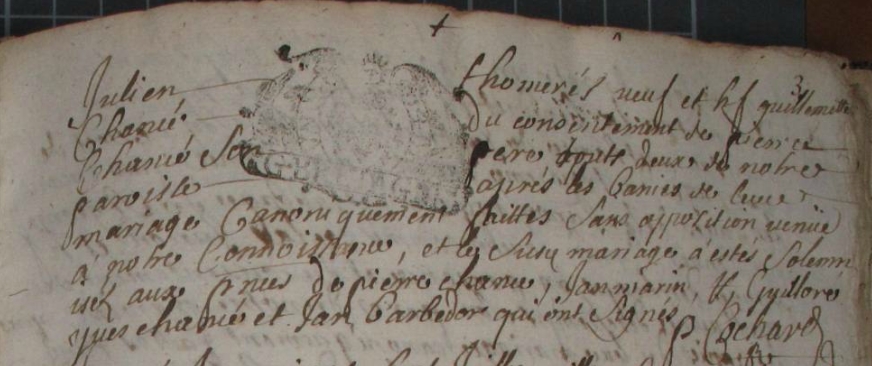 Julien thomerés veuf et h.f guillemette
Chanué du consentement de pierre
Chanué Son pere touts deux de notre
paroisse aprés les banies de leur
mariage Canoniquement faittes Sans oppozition venüe
a notre Connoissance, et le Susd mariage a estés Solemn
isez aux pnces de pierre chanue, Jan marin, Guillore
yves chanué et Jan barbedor qui ont Signés
P Cochard